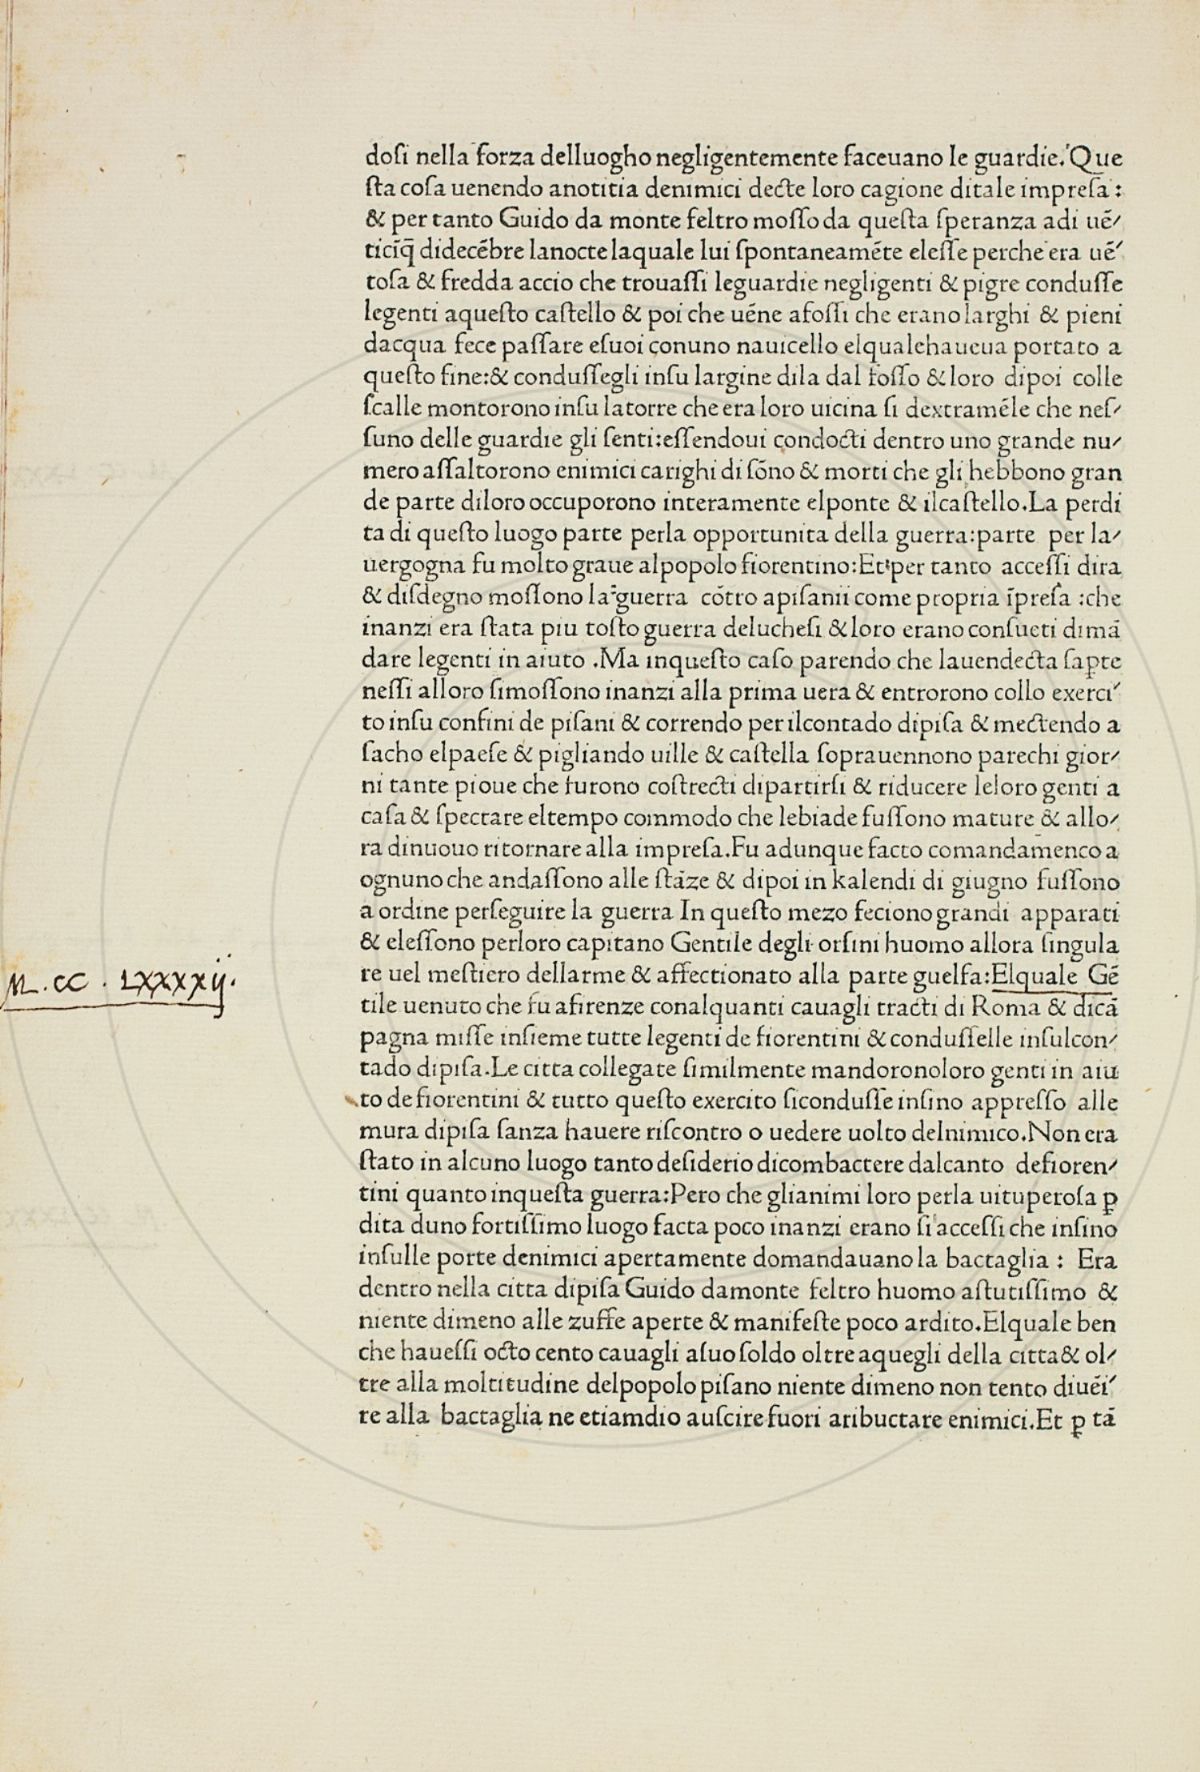 doſi nella forza delluogho negligentemente faceuano le guardie. Que
ſta coſa uenendo anotitia denimici decte loro cagione ditale impreſa:
& per tanto Guido da monte feltro moſſo da queſta ſperanza adi uē/
ticīq̄ didecēbre lanocte laquale lui ſpontaneamēte eleſſe perche era uē/
toſa & fredda accio che trouaſſi leguardie negligenti & pigre conduſſe
legenti aqueſto caſtello & poi che uēne afoſſi che erano larghi & pieni
dacqua fece paſſare eſuoi conuno nauicello elqualehaueua portato a
queſto fine:& conduſſegli inſu largine dila dal foſſo & loro dipoi colle
ſcalle montorono inſu latorre che era loro uicina ſi dextramēle che neſ/
ſuno delle guardie gli ſenti:eſſendoui condocti dentro uno grande nu/
mero aſſaltorono enimici carighi di ſōno & morti che gli hebbono gran
de parte diloro occuporono interamente elponte & ilcaſtello.La perdi
ta di queſto luogo parte perla opportunita della guerra:parte per la/
uergogna fu molto graue alpopolo fiorentino:Et per tanto acceſſi dira
& diſdegno moſſono la guerra cōtro apiſanii come propria īpreſa :che
inanzi era ſtata piu toſto guerra delucheſi & loro erano conſueti dimā
dare legenti in aiuto .Ma inqueſto caſo parendo che lauendecta ſapꝑte
neſſi alloro ſimoſſono inanzi alla prima uera & entrorono collo exerci/
to inſu confini de piſani & correndo per ilcontado dipiſa & mectendo a
ſacho elpaeſe & pigliando uille & caſtella ſoprauennono parechi gior/
ni tante pioue che furono coſtrecti dipartirſi & riducere leloro genti a
caſa & ſpectare eltempo commodo che lebiade fuſſono mature & allo/
ra dinuouo ritornare alla impreſa.Fu adunque facto comandamenco a
ognuno che andaſſono alle ſtāze & dipoi in kalendi di giugno fuſſono
a ordine perſeguire la guerra In queſto mezo feciono grandi apparati
& eleſſono perloro capitano Gentile degli orſini huomo allora ſingula
re uel meſtiero dellarme & affectionato alla parte guelfa:Elquale Gē
M.CC.LXXXXij.
tile uenuto che fu afirenze conalquanti cauagli tracti di Roma & dicā
pagna miſſe inſieme tutte legenti de fiorentini & conduſſelle inſulcon/
tado dipiſa.Le citta collegate ſimilmente mandoronoloro genti in aiu
to defiorentini & tutto queſto exercito ſiconduſſe inſino appreſſo alle
mura dipiſa ſanza hauere riſcontro o uedere uolto delnimico.Non era
ſtato in alcuno luogo tanto deſiderio dicombactere dalcanto defioren/
tini quanto inqueſta guerra:Pero che glianimi loro perla uituperoſa ꝑ
dita duno fortiſſimo luogo facta poco inanzi erano ſi acceſſi che inſino
inſulle porte denimici apertamente domandauano la bactaglia : Era
dentro nella citta dipiſa Guido damonte feltro huomo aſtutiſſimo &
niente dimeno alle zuffe aperte & manifeſte poco ardito.Elquale ben
che haueſſi octo cento cauagli aſuo ſoldo oltre aquegli della citta & ol/
tre alla moltitudine delpopolo piſano niente dimeno non tento diuēi/
re alla bactaglia ne etiamdio auſcire fuori aributtare enimici.Et ꝑ tā